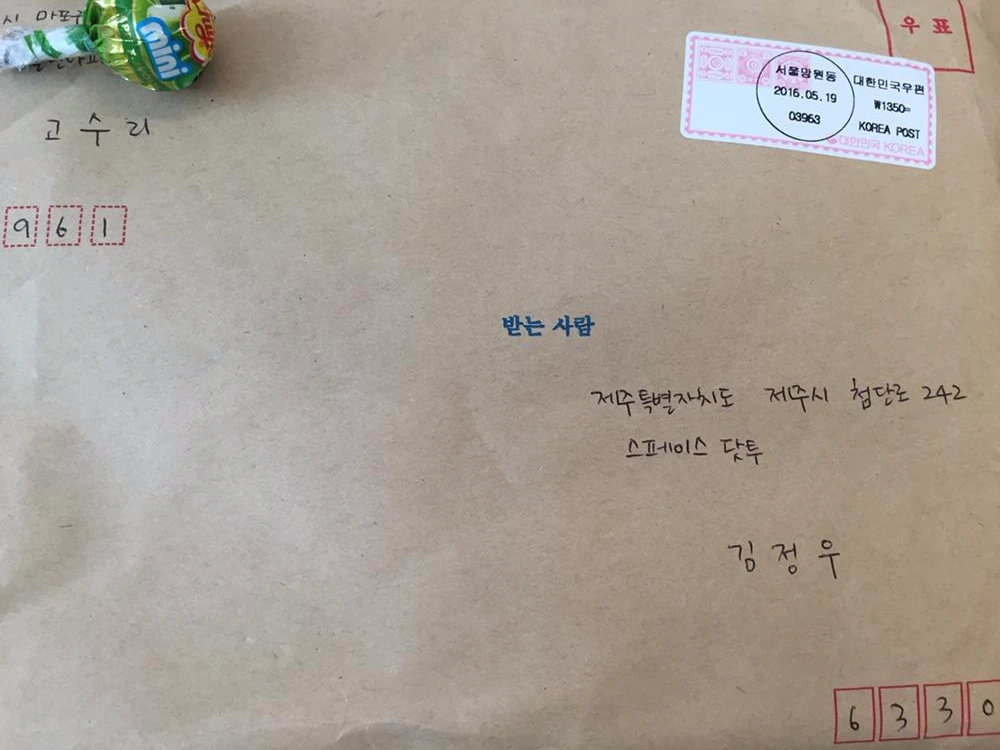 시 마포구
mini
고 수 리
9 6 1
우 표
서울망원동
2016.05.19
03963
대한민국우편
₩1350=
KOREA POST
대한민국 KOREA
받는 사람
제주특별자치도 제주시 첨단로 242
스페이스 닷투
김 정 우
6 3 3 0